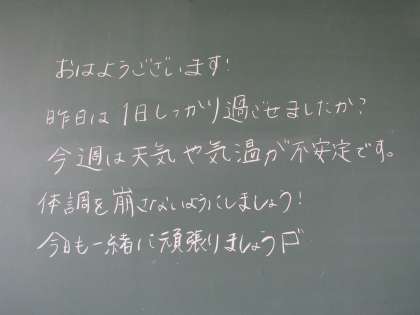 おはようございます!
昨日は1日しっかり過ごせましたか?
今週は天気や気温が不安定です。
体調を崩さないようにしましょう!
今日も一緒に頑張りましょう